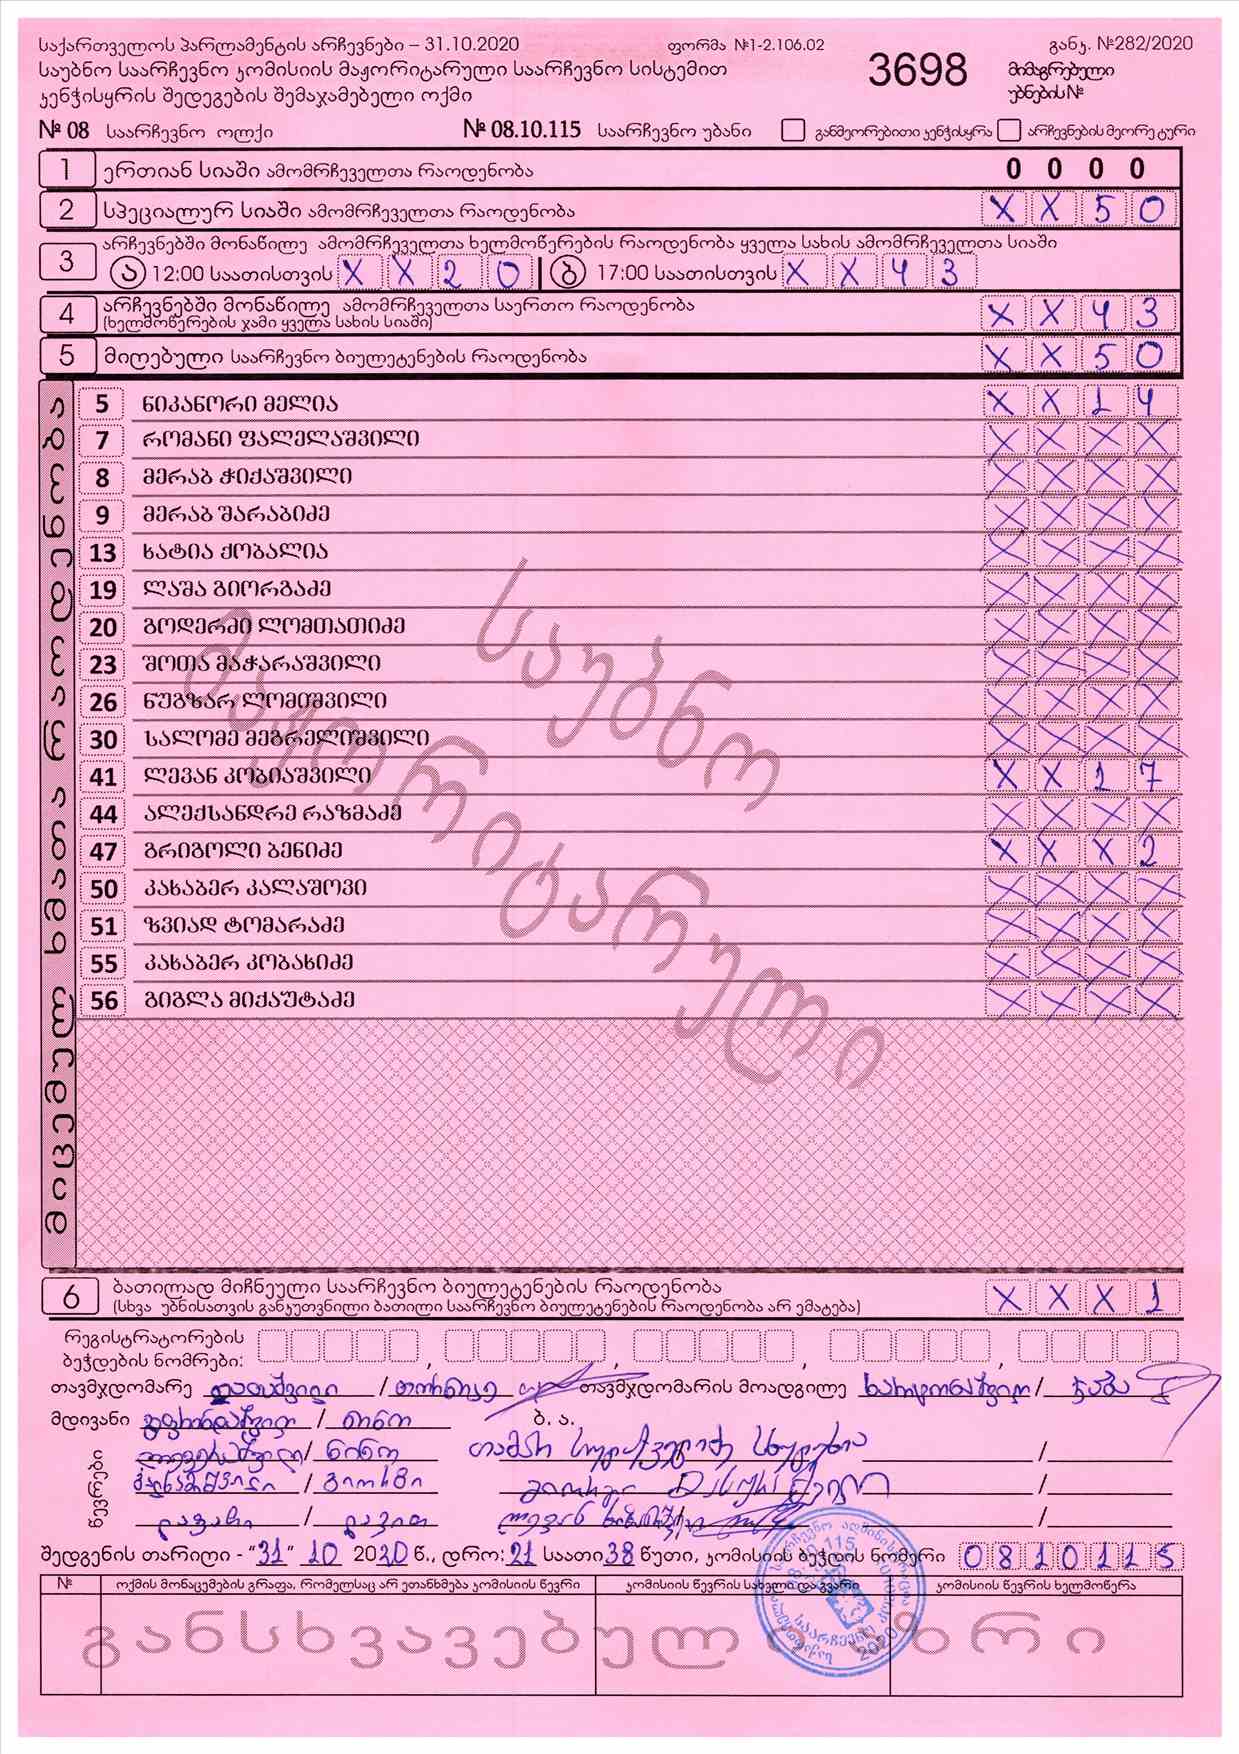 საქართველოს პარლამენტის არჩევნები – 31.10.2020 ფორმა №1-2.106.02 განკ. №282/2020
საუბნო საარჩევნო კომისიის მაჟორიტარული საარჩევნო სისტემით 3698 მიმაგრებული
კენჭისყრის შედეგების შემაჯამებელი ოქმი უბნების №
№ 08 საარჩევნო ოლქი № 08.10.115 საარჩევნო უბანი განმეორებითი კენჭისყრა არჩევნების მეორე ტური
1 ერთიან სიაში ამომრჩეველთა რაოდენობა 0 0 0 0
2 სპეციალურ სიაში ამომრჩეველთა რაოდენობა X X 5 0
არჩევნებში მონაწილე ამომრჩეველთა ხელმოწერების რაოდენობა ყველა სახის ამომრჩეველთა სიაში
3 ა 12:00 საათისთვის X X 2 0 ბ 17:00 საათისთვის X X 4 3
4 არჩევნებში მონაწილე ამომრჩეველთა საერთო რაოდენობა X X 4 3
(ხელმოწერების ჯამი ყველა სახის სიაში)
5 მიღებული საარჩევნო ბიულეტენების რაოდენობა X X 5 0
მიცემულ ხმათა რაოდენობა
5 ნიკანორი მელია X X 1 4
7 რომანი ფალელაშვილი X X X X
8 მერაბ ჭიქაშვილი X X X X
9 მერაბ შარაბიძე X X X X
13 ხატია ქობალია X X X X
19 ლაშა გიორგაძე X X X X
20 გოდერძი ლომთათიძე X X X X
23 შოთა მაჭარაშვილი X X X X
26 ნუგზარ ლომიშვილი X X X X
30 სალომე მეგრელიშვილი X X X X
41 ლევან კობიაშვილი X X 2 7
44 ალექსანდრე რაზმაძე X X X X
47 გრიგოლი ბენიძე X X X 2
50 კახაბერ კალაშოვი X X X X
51 ზვიად ტომარაძე X X X X
55 კახაბერ კობახიძე X X X X
56 გიგლა მიქაუტაძე X X X X
საუბნო
მაჟორიტარული
6 ბათილად მიჩნეული საარჩევნო ბიულეტენების რაოდენობა X X X 1
(სხვა უბნისათვის განკუთვნილი ბათილი საარჩევნო ბიულეტენების რაოდენობა არ ემატება)
რეგისტრატორების
ბეჭდების ნომრები: , , , ,
თავმჯდომარე / თორნიკე თავმჯდომარის მოადგილე / ჯაბა
მდივანი / ნინო ბ. ა.
წევრები / ნინო თამარ /
/ გიორგი გიორგი /
/ დავით ლევან /
შედგენის თარიღი - "31" 10 2020 წ., დრო: 21 საათი 38 წუთი, კომისიის ბეჭდის ნომერი 0 8 1 0 1 1 5
№ ოქმის მონაცემების გრაფა, რომელსაც არ ეთანხმება კომისიის წევრი კომისიის წევრის სახელი და გვარი კომისიის წევრის ხელმოწერა
განსხვავებული აზრი